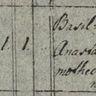 Basil
1 1 Anasta
mothe